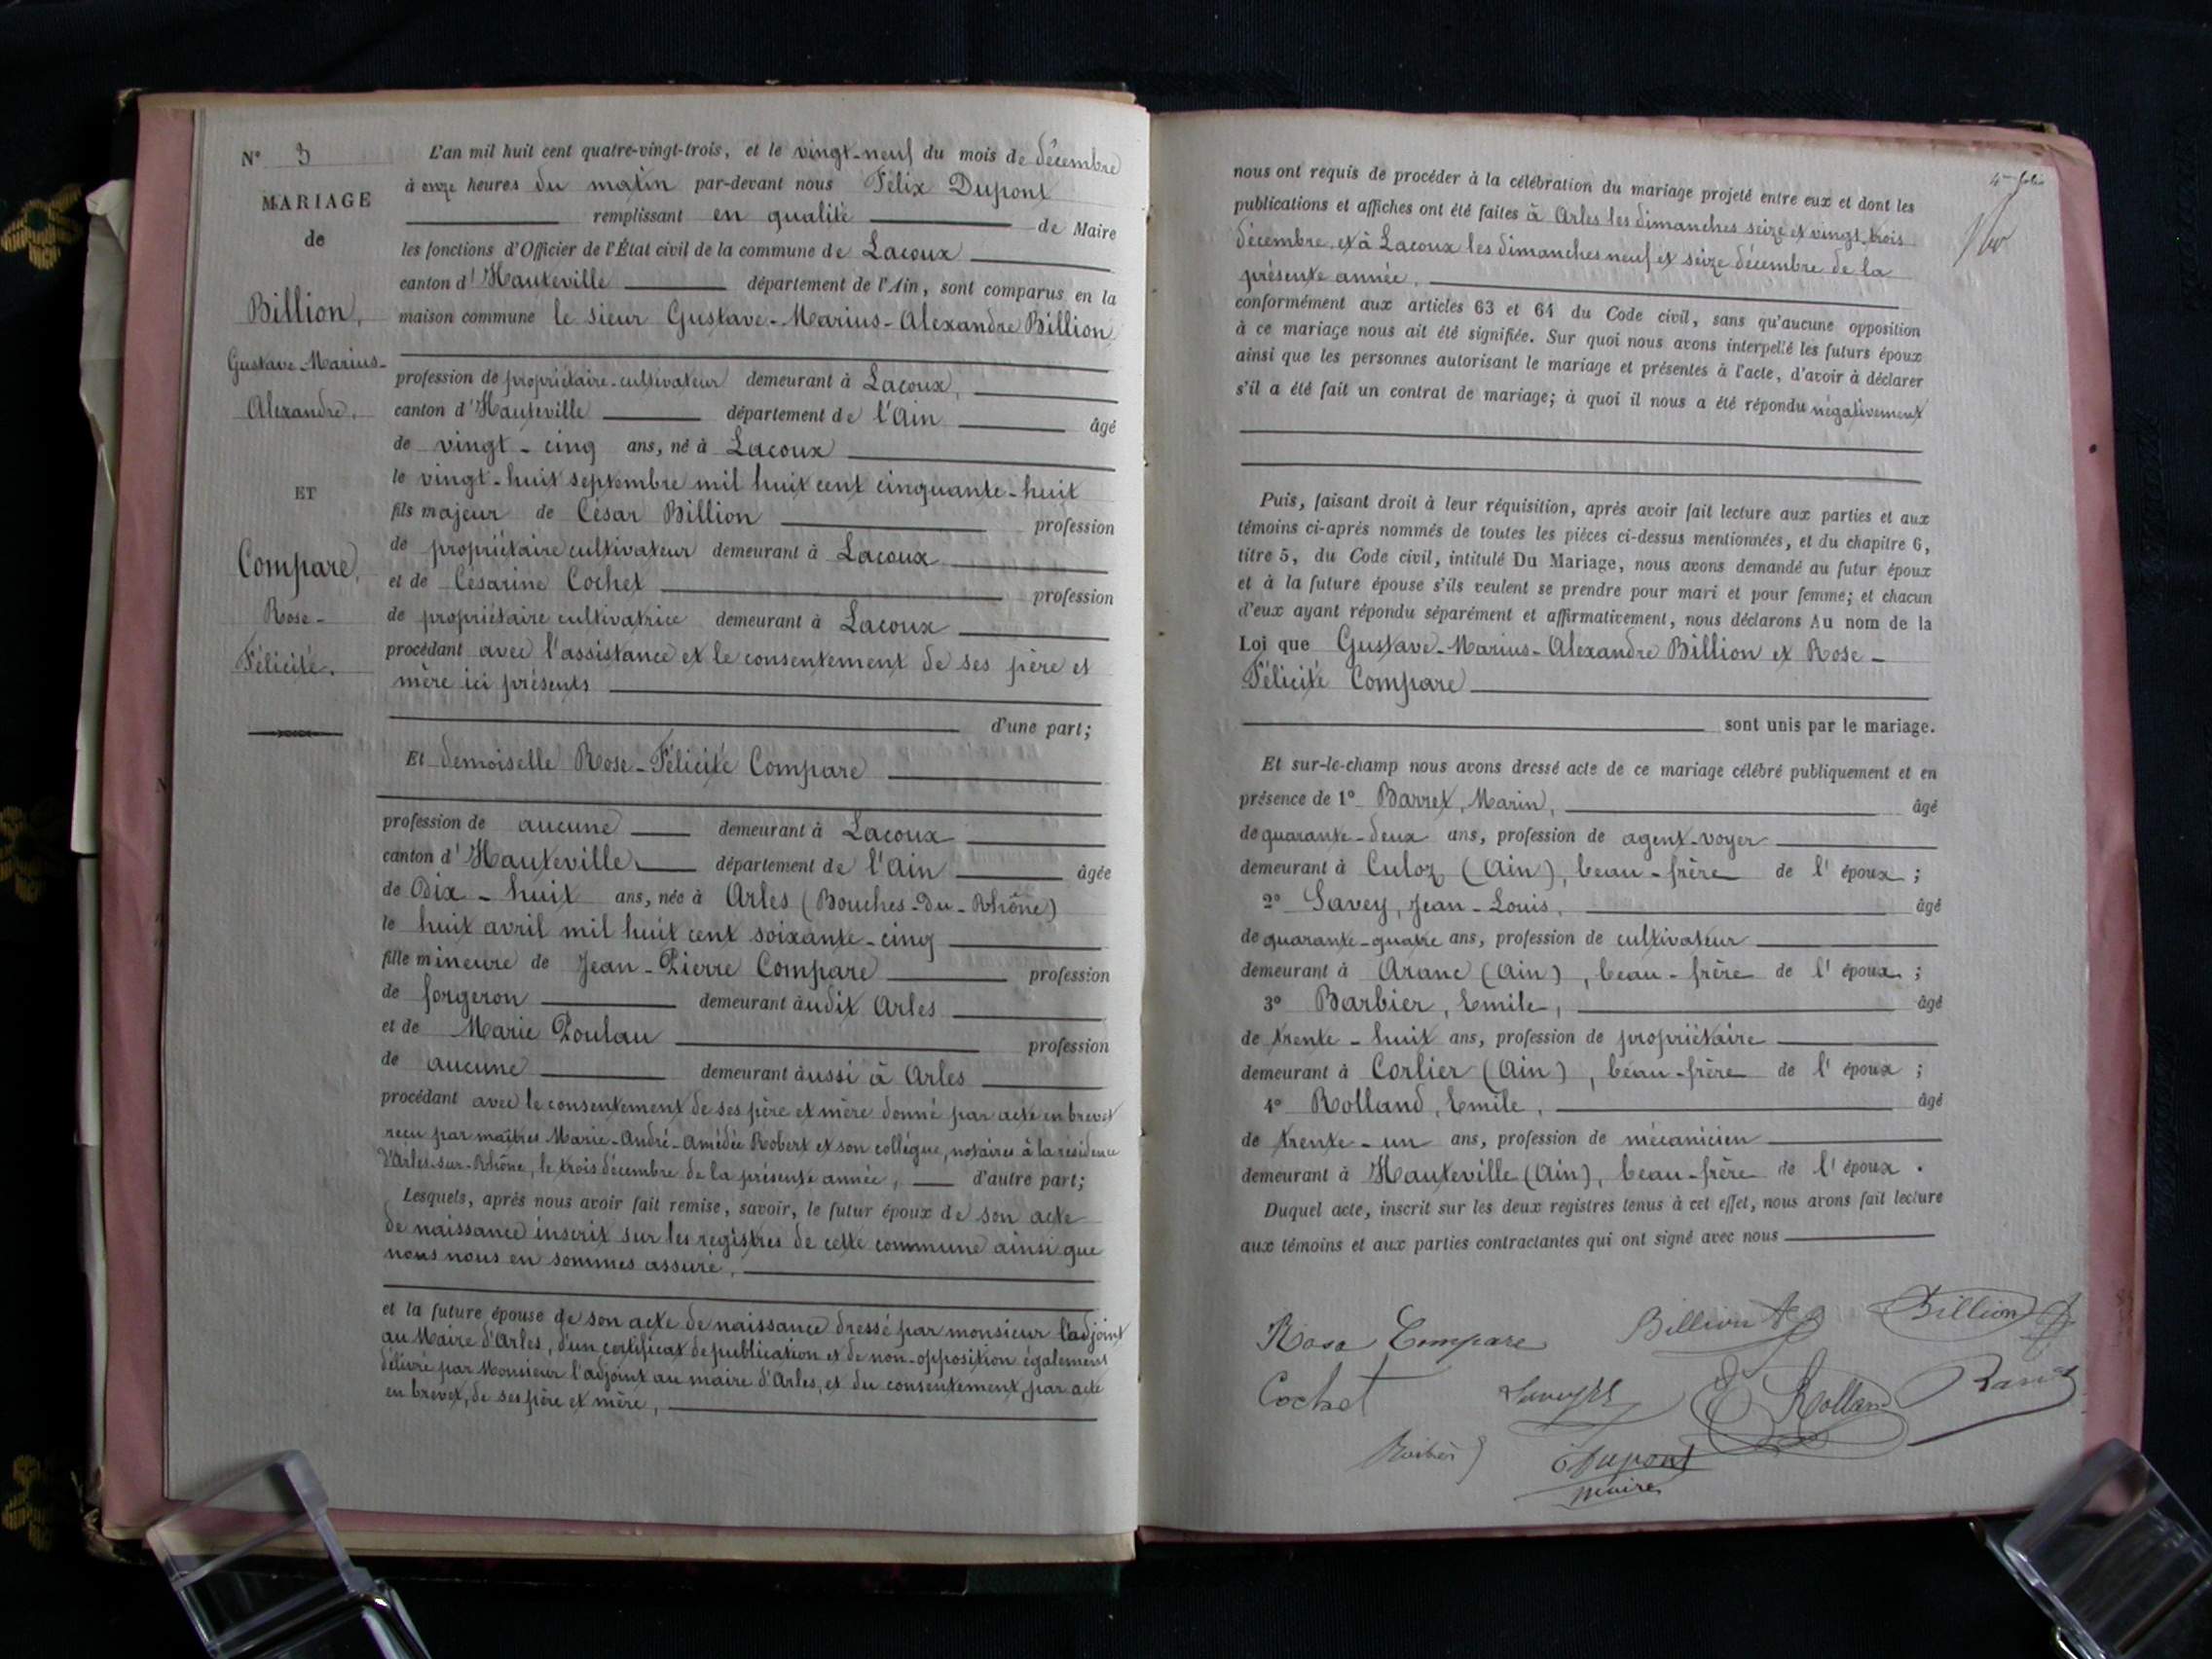 N° 3
MARIAGE
de
Billion,
Gustave-Marius-
Alexandre.
ET
Compare,
Rose-
Félicité.
L'an mil huit cent quatre-vingt-trois, et le vingt-neuf du mois de décembre
à onze heures du matin par-devant nous Félix Dupont
remplissant en qualité de Maire
les fonctions d'Officier de l'État civil de la commune de Lacoux
canton d'Hauteville département de l'Ain, sont comparus en la
maison commune le sieur Gustave-Marius-Alexandre Billion
profession de propriétaire-cultivateur demeurant à Lacoux,
canton d'Hauteville département de l'Ain âgé
de vingt-cinq ans, né à Lacoux
le vingt-huit septembre mil huit cent cinquante-huit
fils majeur de César Billion profession
de propriétaire cultivateur demeurant à Lacoux
et de Césarine Cochet profession
de propriétaire cultivatrice demeurant à Lacoux
procédant avec l'assistance et le consentement de ses père et
mère ici présents
d'une part;
Et demoiselle Rose-Félicité Compare
profession de aucune demeurant à Lacoux
canton d'Hauteville département de l'Ain âgée
de Dix-huit ans, née à Arles (Bouches-du-Rhône)
le huit avril mil huit cent soixante-cinq
fille mineure de Jean-Pierre Compare profession
de forgeron demeurant àudit Arles
et de Marie Poulau profession
de aucune demeurant àussi à Arles
procédant avec le consentement de ses père et mère donné par acte en brevet
reçu par maîtres Marie-André-Amédée Robert et son collègue, notaires à la résidence
d'Arles-sur-Rhône, le trois décembre de la présente année, d'autre part;
Lesquels, après nous avoir fait remise, savoir, le futur époux de son acte
de naissance inscrit sur les registres de cette commune ainsi que
nous nous en sommes assuré,
et la future épouse de son acte de naissance dressé par monsieur l'adjoint
au Maire d'Arles, d'un certificat de publication et de non-opposition également
délivré par Monsieur l'adjoint au maire d'Arles, et du consentement, par acte
en brevet, de ses père et mère,
4e folio
nous ont requis de procéder à la célébration du mariage projeté entre eux et dont les
publications et affiches ont été faites à Arles les dimanches seize et vingt-trois
décembre, et à Lacoux les dimanches neuf et seize décembre de la
présente année,
conformément aux articles 63 et 64 du Code civil, sans qu'aucune opposition
à ce mariage nous ait été signifiée. Sur quoi nous avons interpellé les futurs époux
ainsi que les personnes autorisant le mariage et présentes à l'acte, d'avoir à déclarer
s'il a été fait un contrat de mariage; à quoi il nous a été répondu négativement
Puis, faisant droit à leur réquisition, après avoir fait lecture aux parties et aux
témoins ci-après nommés de toutes les pièces ci-dessus mentionnées, et du chapitre 6,
titre 5, du Code civil, intitulé Du Mariage, nous avons demandé au futur époux
et à la future épouse s'ils veulent se prendre pour mari et pour femme; et chacun
d'eux ayant répondu séparément et affirmativement, nous déclarons Au nom de la
Loi que Gustave-Marius-Alexandre Billion et Rose-
Félicité Compare
sont unis par le mariage.
Et sur-le-champ nous avons dressé acte de ce mariage célébré publiquement et en
présence de 1° Barret, Marin, âgé
de quarante-deux ans, profession de agent-voyer
demeurant à Culoz (Ain), beau-frère de l'époux;
2° Savey, Jean-Louis, âgé
de quarante-quatre ans, profession de cultivateur
demeurant à Aranc (Ain), beau-frère de l'époux;
3° Barbier, Emile, âgé
de trente-huit ans, profession de propriétaire
demeurant à Corlier (Ain), beau-frère de l'époux;
4° Rolland, Emile, âgé
de trente-un ans, profession de mécanicien
demeurant à Hauteville (Ain), beau-frère de l'époux.
Duquel acte, inscrit sur les deux registres tenus à cet effet, nous avons fait lecture
aux témoins et aux parties contractantes qui ont signé avec nous
Rosa Compare Billion Billion
Cochet E Rolland
Dupont
maire